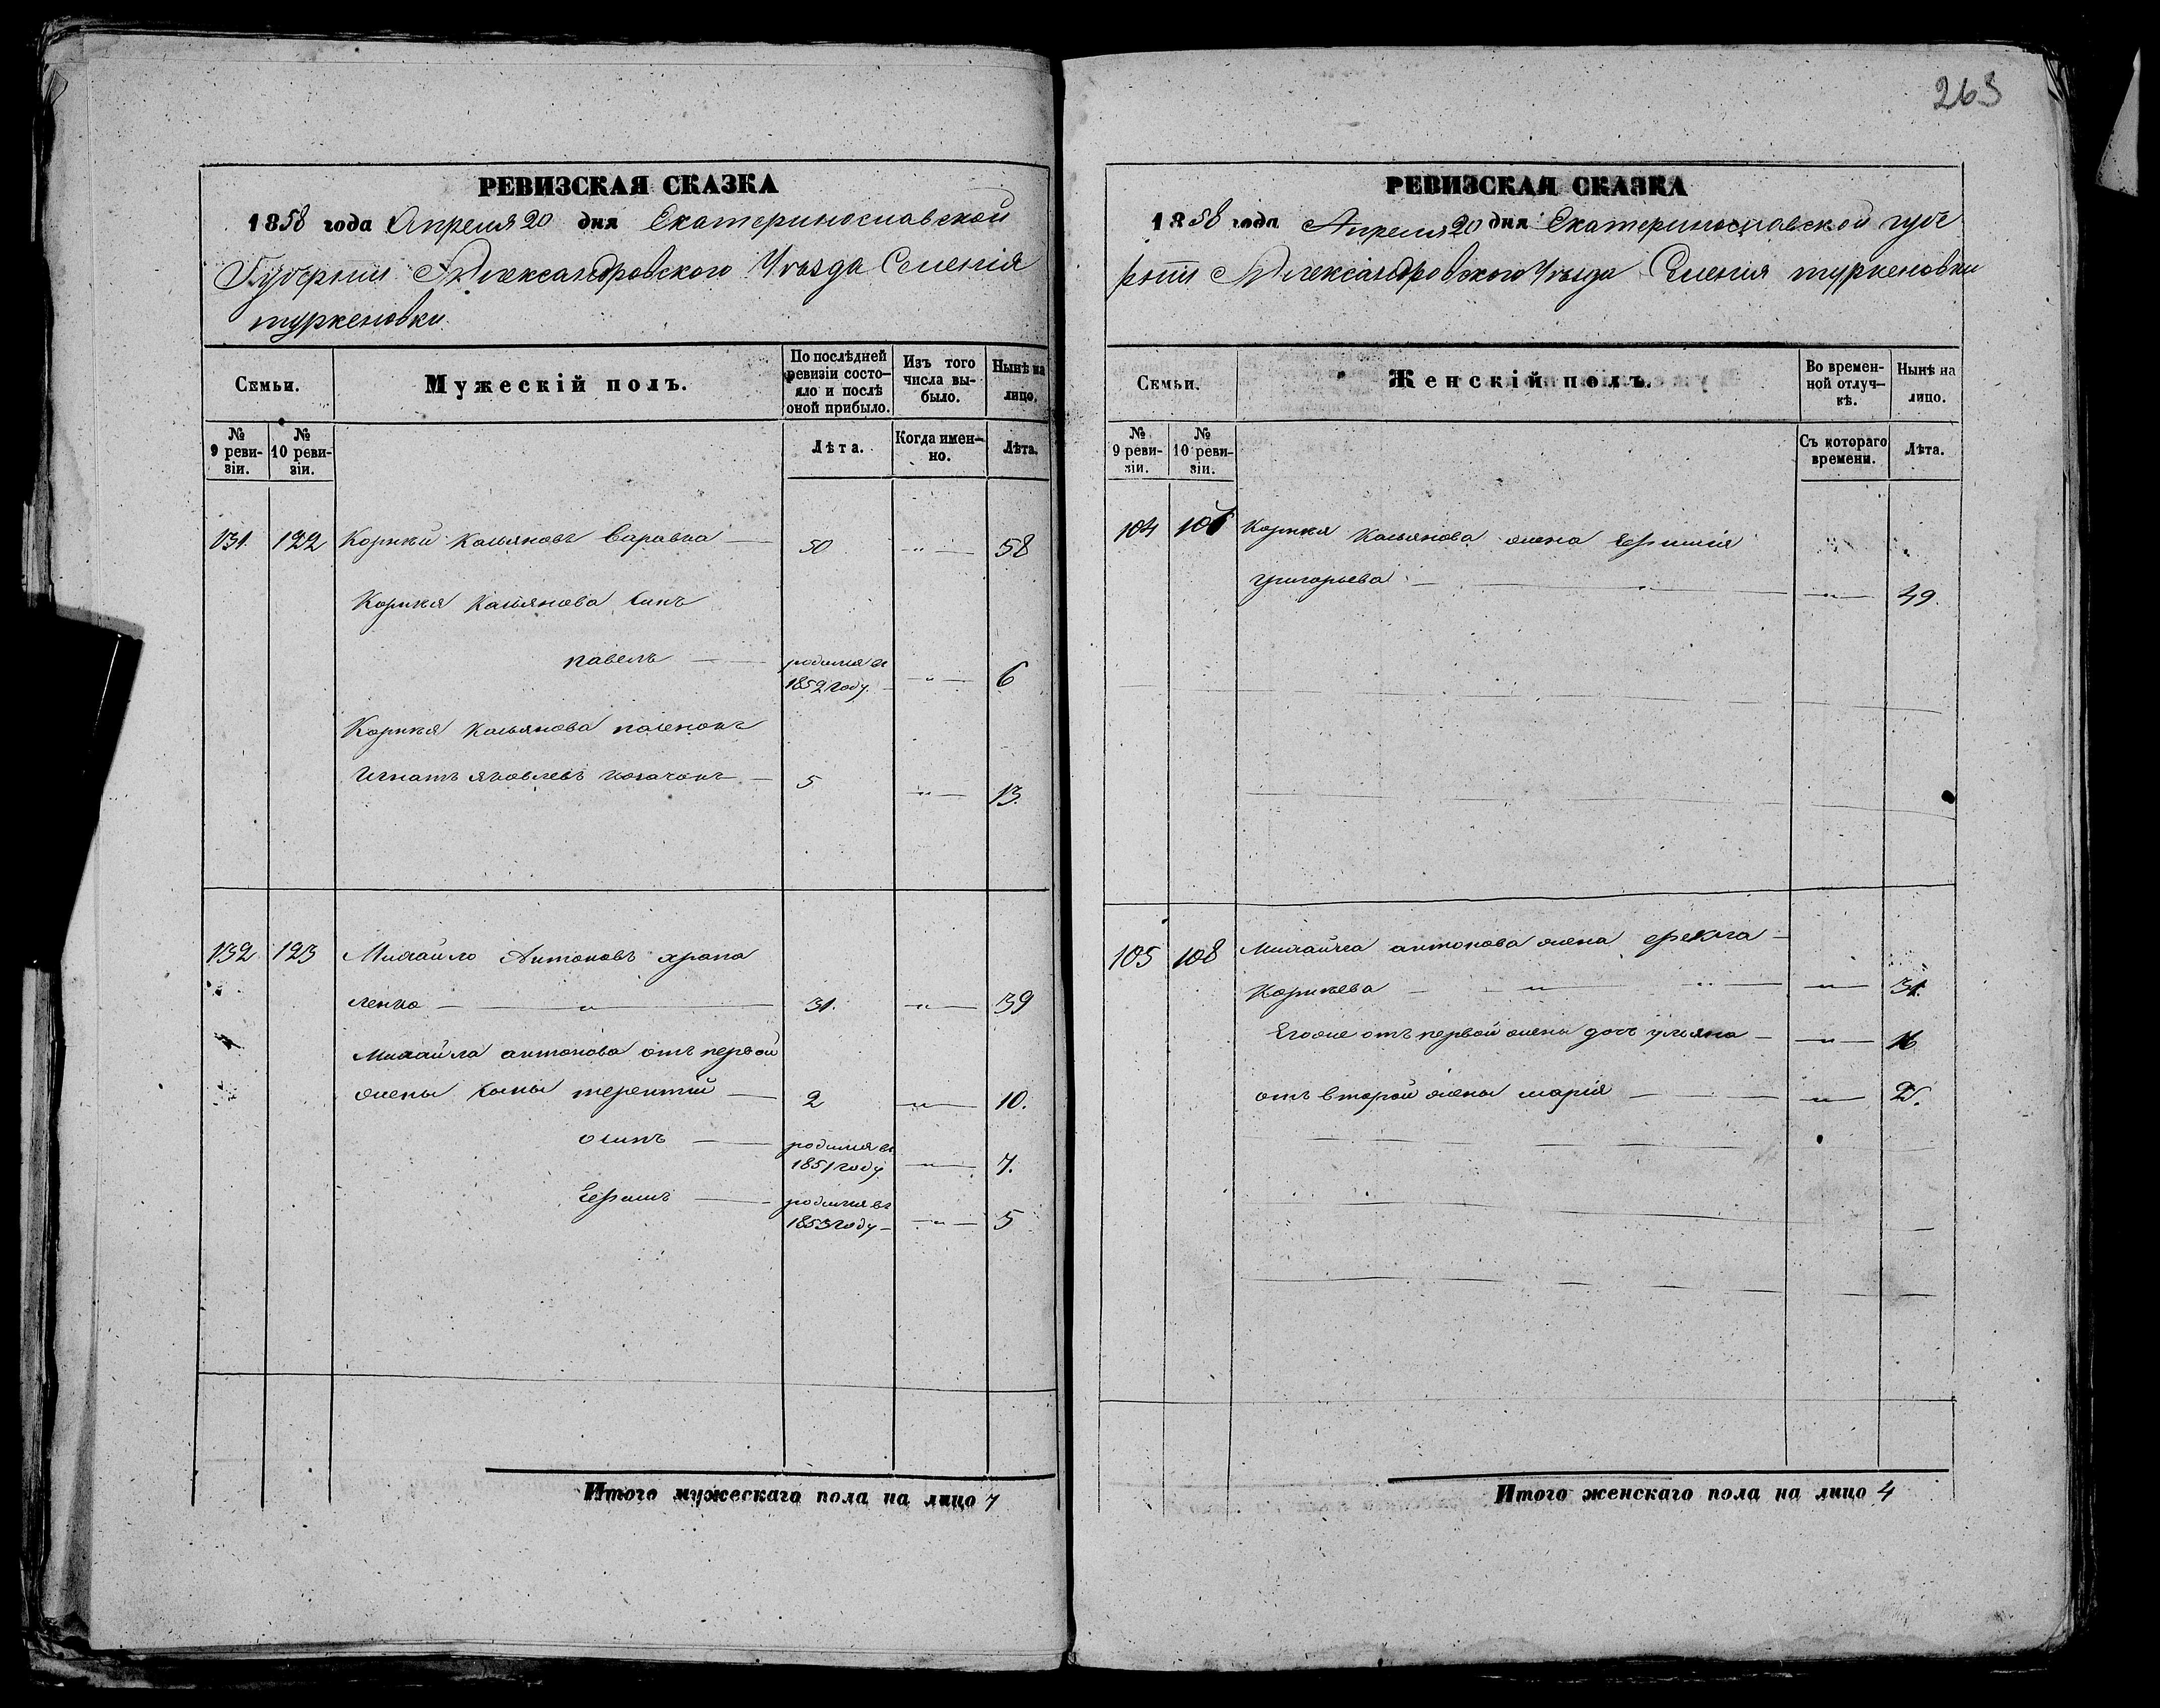 263
РЕВИЗСКАЯ СКАЗКА
1858 года Апреля 20 дня Екатеринославской
Губернии Александровского Уѣзда Селенія
туркеновки
Семьи.
Мужескій полъ.
По послѣдней ревизіи состояло и послѣ оной прибыло.
Изъ того числа выбыло.
Нынѣ на лицо.
№ 9 ревизіи.
№ 10 ревизіи.
Лѣта.
Когда именно.
Лѣта.
131. 122 Корнѣй Касьяновъ Варавка — 50 „ — 58
Корнѣя Касьянова сынъ
павелъ — родился въ
1852 году. — „ — 6
Корнѣя Касьянова
Игнатъ Яковлевъ козачокъ — 5 „ — 13.
132 123 Михайло Антоновъ храпа
ленко — „ — 31. „ — 39
Михайла антонова отъ первой
жены сыны терентій — 2 „ — 10.
осипъ — родился въ
1851 году — „ — 7.
Ефимъ — родился въ
1853 году — „ — 5
Итого мужескаго пола на лицо 7
РЕВИЗСКАЯ СКАЗКА
1858 года Апреля 20 дня Екатеринославской губе
рніи Александровского Уѣзда Селения туркеновки
Семьи.
Женскій полъ.
Во временной отлучкѣ.
Нынѣ на лицо.
№ 9 ревизіи.
№ 10 ревизіи.
Съ котораго времени.
Лѣта.
104 Корнѣя Касьянова жена
григорьева — „ — 49.
105 108 Михайла антонова жена фекла —
Корнѣева — „ — „ — 31.
Егоже отъ первой жены дочь ульяна — „ — 16
отъ второй жены марія — „ — 2.
Итого женскаго пола на лицо 4